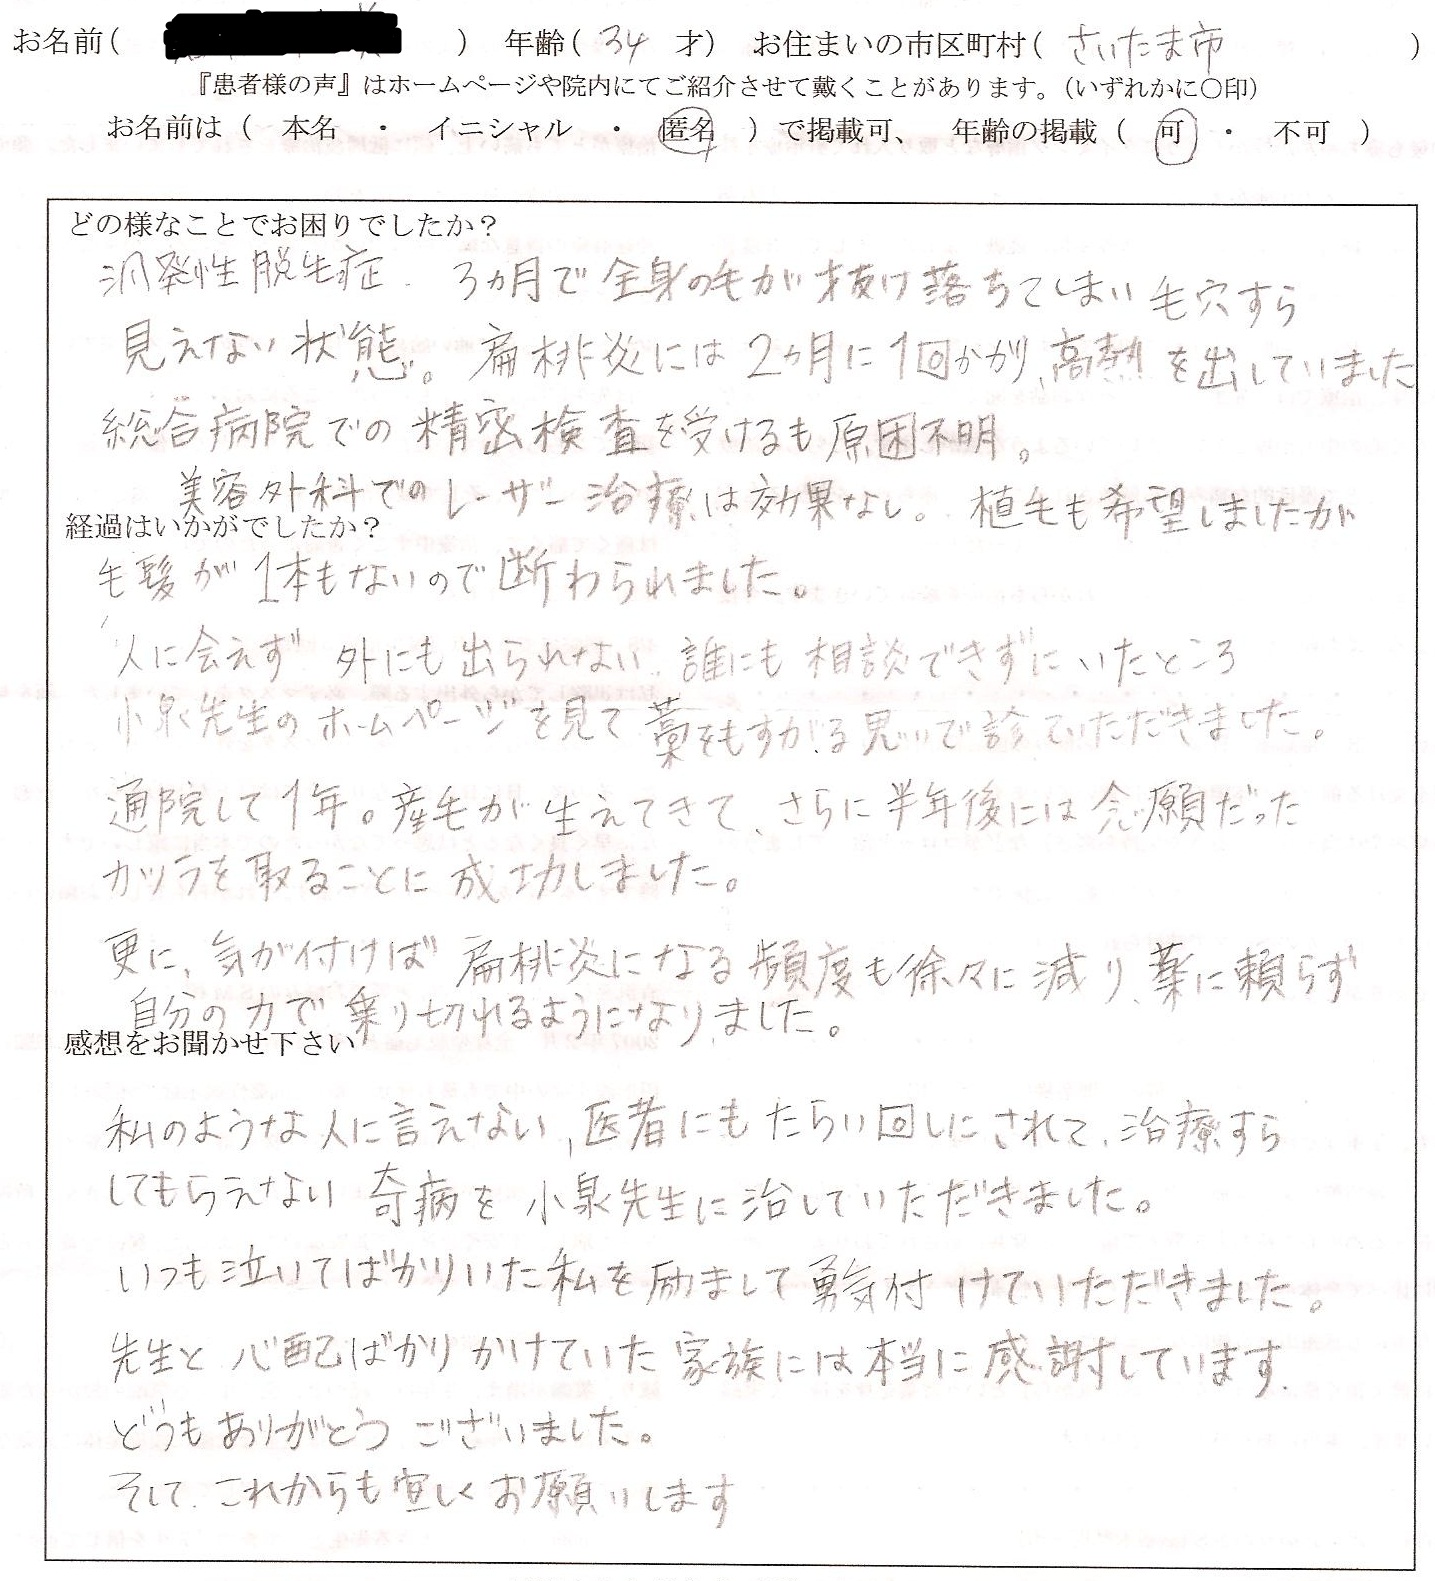 お名前( ) 年齢( 34 才) お住まいの市区町村( さいたま市 )
『患者様の声』はホームページや院内にてご紹介させて戴くことがあります。(いずれかに○印)
お名前は ( 本名 ・ イニシャル ・ 匿名 ) で掲載可、 年齢の掲載 ( 可 ・ 不可 )
どの様なことでお困りでしたか?
汎発性脱毛症. 3ヵ月で全身の毛が抜け落ちてしまい毛穴すら
見えない状態。扁桃炎には2ヵ月に1回かかり、高熱を出していました
総合病院での精密検査を受けるも原因不明。
美容外科でのレーザー治療は効果なし。植毛も希望しましたが
経過はいかがでしたか?
毛髪が1本もないので断わられました。
人に会えず 外にも出られない、誰にも相談できずにいたところ
小泉先生のホームページを見て藁をもすがる思いで診ていただきました。
通院して1年。産毛が生えてきて、さらに半年後には念願だった
カツラを取ることに成功しました。
更に、気が付けば扁桃炎になる頻度も徐々に減り、薬に頼らず
自分の力で乗り切れるようになりました。
感想をお聞かせ下さい
私のような人に言えない、医者にもたらい回しにされて、治療すら
してもらえない奇病を小泉先生に治していただきました。
いつも泣いてばかりいた私を励まして勇気付けていただきました。
先生と心配ばかりかけていた家族には本当に感謝しています.
どうもありがとうございました。
そして、これからも宜しくお願いします